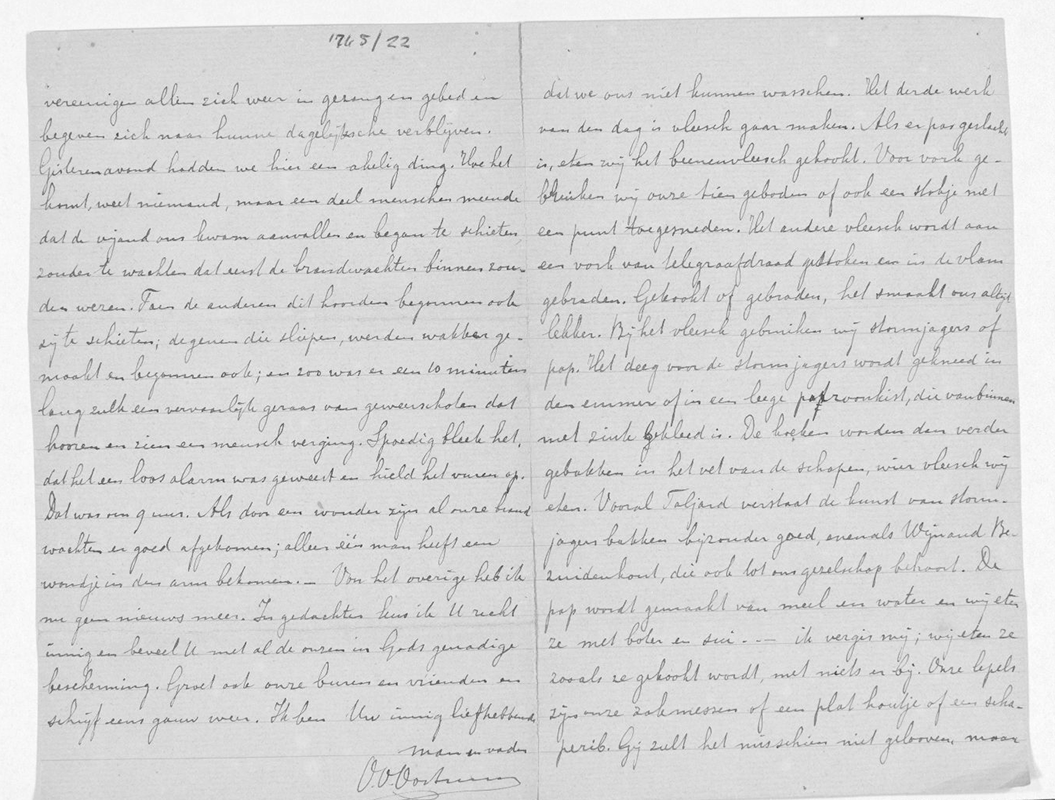 1745/22
vereenigen allen zich weer in gezang en gebed en
begeven zich naar hunne dagelijksche verblijven.
Gisterenavond hadden we hier een akelig ding. Hoe het
komt, weet niemand, maar een deel menschen meende
dat de vijand ons kwam aanvallen en begon te schieten,
zonder te wachten dat eerst de brandwachten binnen zou-
den wezen. Toen de anderen dit hoorden begonnen ook
zij te schieten; degenen die sliepen, werden wakker ge-
maakt en begonnen ook; en zoo was er een 10 minuten
lang zulk een vervaarlijk geraas van geweerschoten dat
hooren en zien een mensch verging. Spoedig bleek het,
dat het een loos alarm was geweest en hield het vuren op.
Dat was om 9 uur. Als door een wonder zijn al onze brand
wachten er goed afgekomen; alleen één man heeft een
wondje in den arm bekomen. — Van het overige heb ik
nu geen nieuws meer. In gedachten kus ik U recht
innig en beveel U met al de onzen in Gods genadige
bescherming. Groet ook onze buren en vrienden en
schrijf eens gauw weer. Ik ben Uw innig liefhebbende
man en vader
dat we ons niet kunnen wasschen. Het derde werk
van den dag is vleesch gaar maken. Als er pas geslacht
is, eten wij het beenenvleesch gekookt. Voor vork ge-
bruiken wij onze tien geboden of ook een stokje met
een punt toegesneden. Het andere vleesch wordt aan
een vork van telegraafdraad gestoken en in de vlam
gebraden. Gekookt of gebraden, het smaakt ons altijd
lekker. Bij het vleesch gebruiken wij stormjagers of
pap. Het deeg voor de stormjagers wordt gekneed in
den emmer of in een leege patroonkist, die van binnen
met zink bekleed is. De koeken worden dan verder
gebakken in het vet van de schapen, wier vleesch wij
eten. Vooral Taljard verstaat de kunst van storm-
jagers bakken bijzonder goed, evenals Wijnand Be-
zuidenhout, die ook tot ons gezelschap behoort. De
pap wordt gemaakt van meel en water en wij eten
ze met boter en sui - - — ik vergis mij; wij eten ze
zooals ze gekookt wordt, met niets er bij. Onze lepels
zijn onze zakmessen of een plat houtje of een scha-
perib. Gij zult het misschien niet gelooven, maar